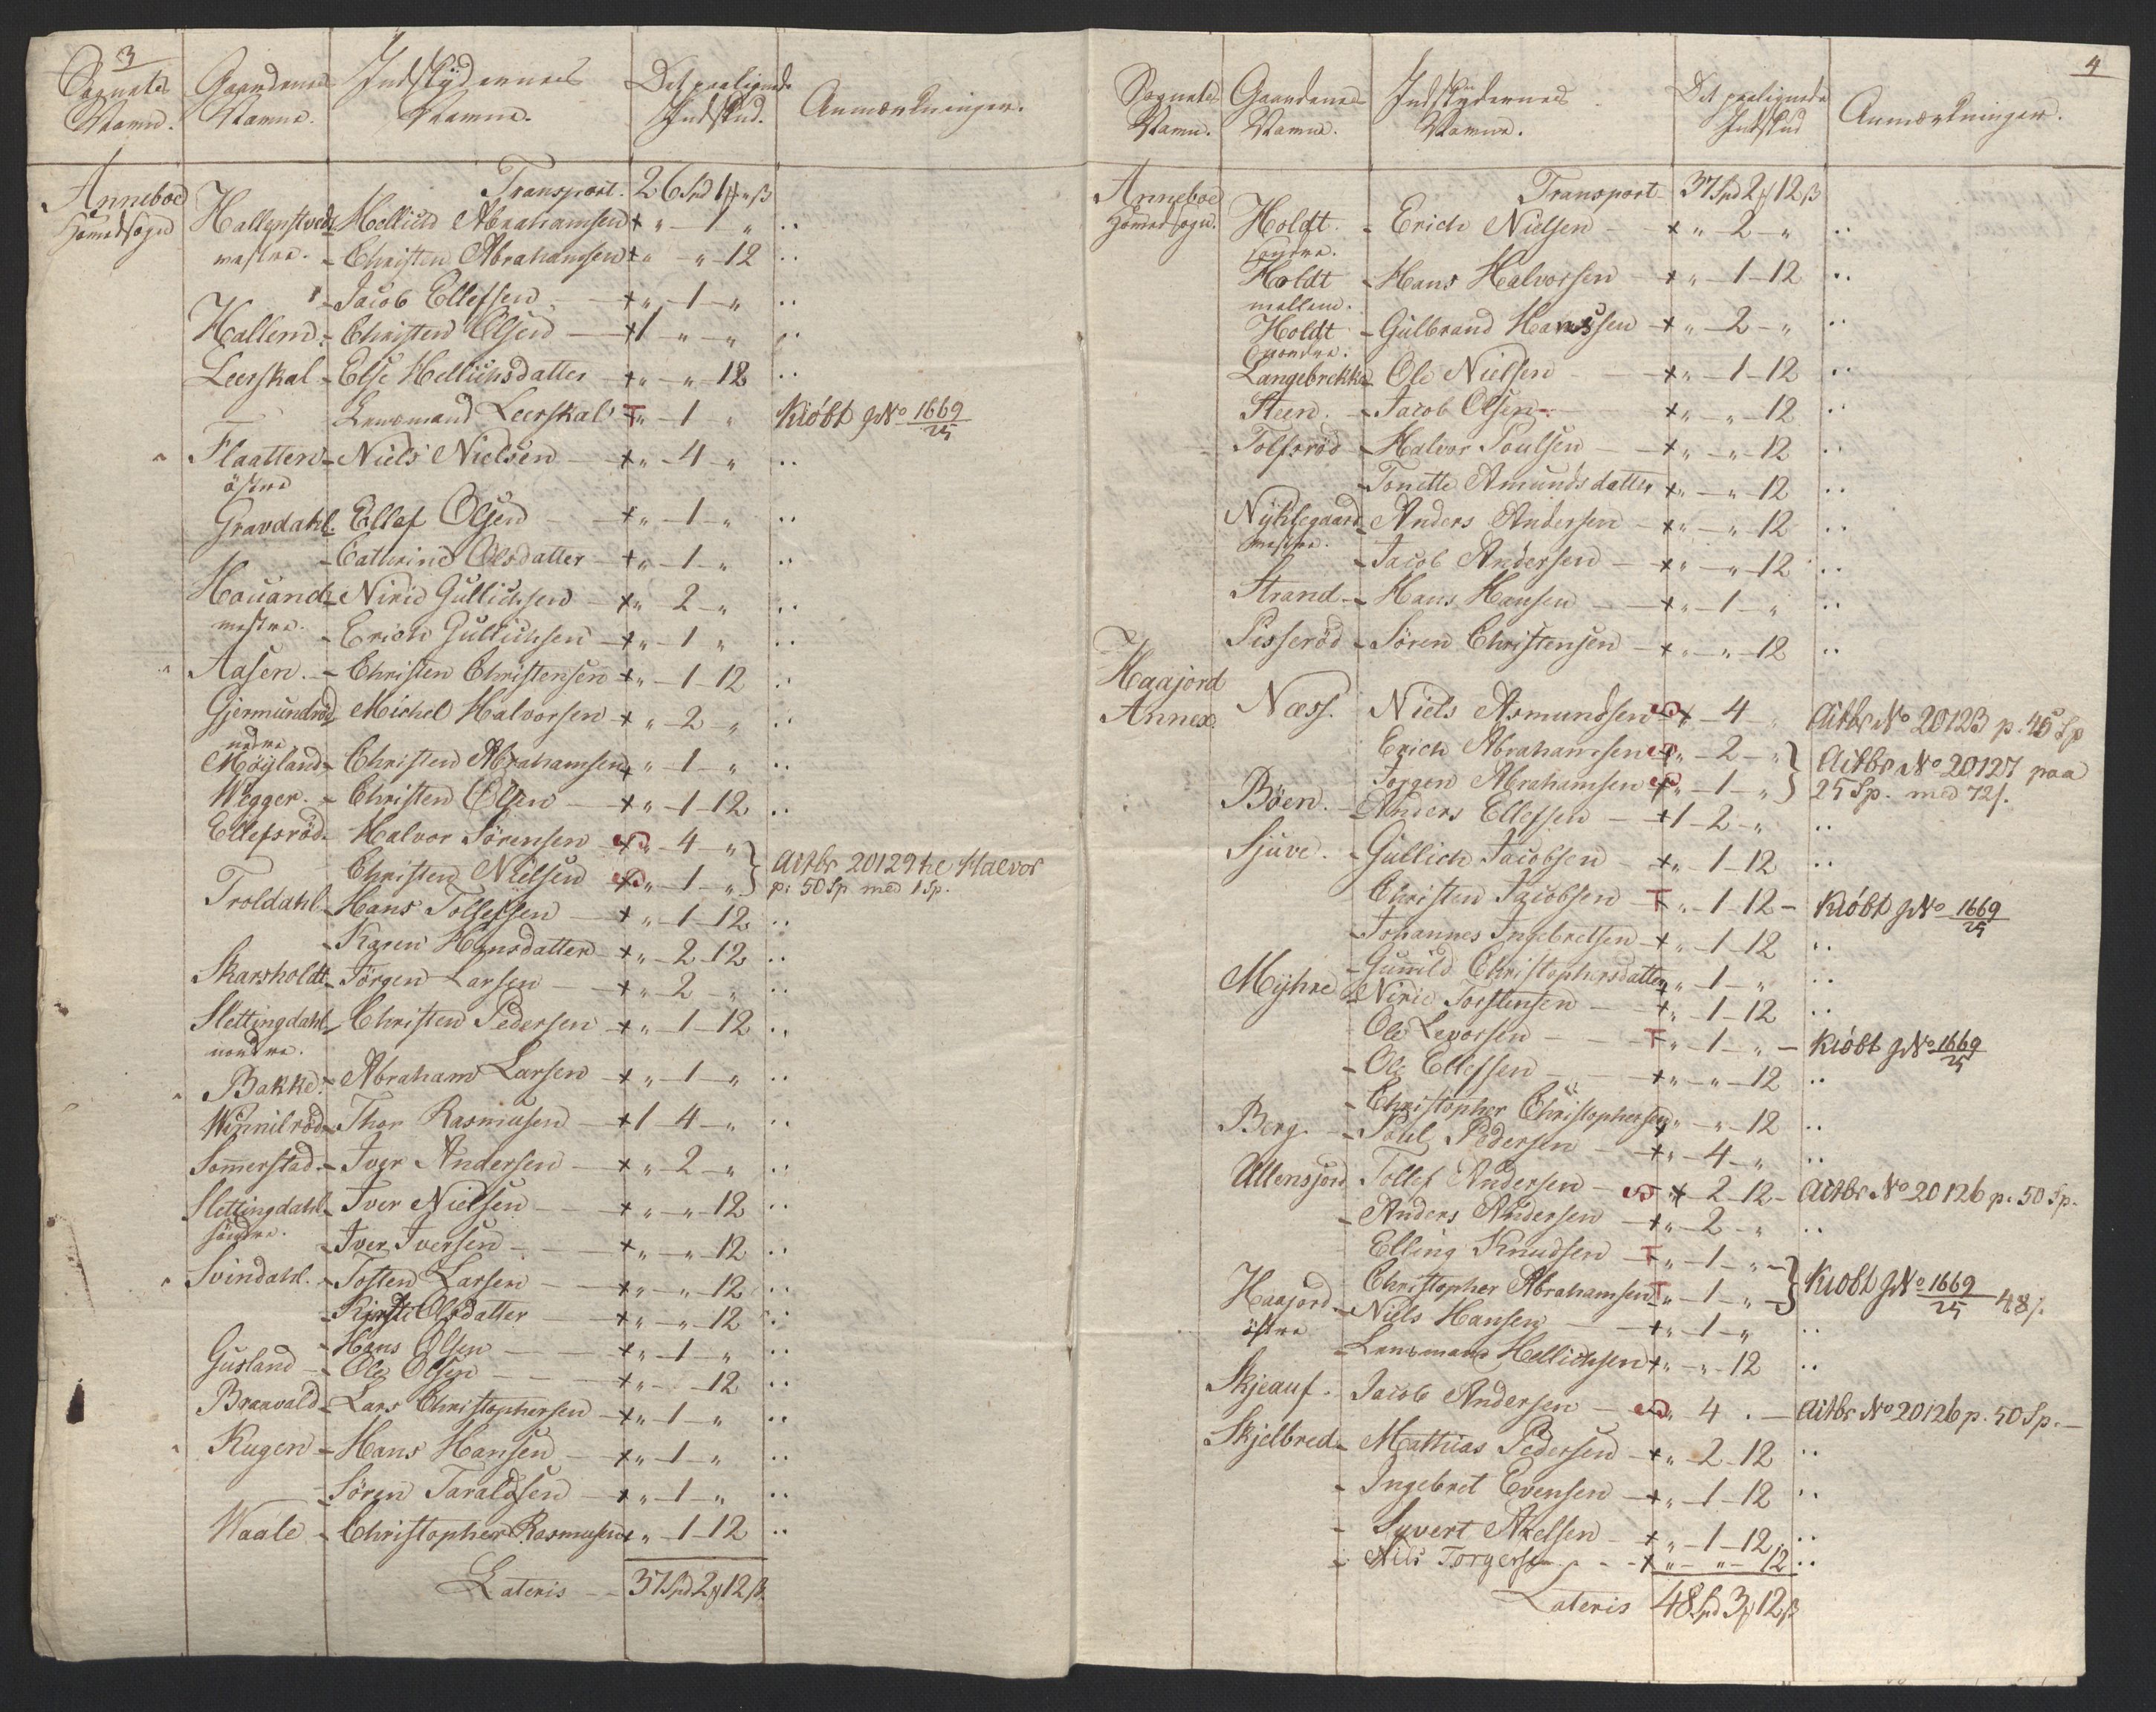 3
Sognets Navne. Gaardenes Navne. Indskydernes Navne. Det paalignede Indskud. Anmærkninger.
Anneboe Hovedsogn Transport. 26 Spd 1 " ß
Hallenstvedt vestre. - Hellich Abrahamsen + " - 1 " ..
- Christen Abrahamsen + " - " 12 ..
- Jacob Ellefsen - + " - 1 - " ..
Hallem. - Christen Olsen - + 1 " - " ..
Leerskal - Else Hellichsdatter + " - " 12 ..
Lensmand Leerskal T " - 1 " Kiöbt gNo 1669/25
Flaatten östre - Niels Nielsen - + " - 4 - " ..
Gravdahl. Ellef Olsen - + " - 1 - " ..
- Cathrine Olsdatter + " - 1 - " ..
Houand vestre. - Nirid Gullichsen - + " 2 - " ..
- Erich Gullichsen - + " - 1 " ..
Aasen. - Christen Christensen + " - 1 - 12 ..
Gjermundröd nedre Michel Halvorsen - + " - 2 - " ..
Möyland - Christen Abrahamsen + " - 1 - " ..
Wegger. - Christen Olsen - + " - 1 - 12 ..
Ellefsröd. Halvor Sörensen - S " - 4 - "
Christen Nielsen S " - 1 - " } Aitbr 20129 til Halvor
p: 50 Sp med 1 Sp.
Troldahl - Hans Tollefsen - + " - 1 - 12 ..
- Karen Hansdatter + " - 2 - 12 ..
Skarsholdt - Jörgen Larsen - + " - 2 - " ..
Slettingdahl nordre. - Christen Pedersen + " - 1 - 12 ..
Bakke. - Abraham Larsen + " - 1 - " ..
Winnilröd - Thor Rasmusen + 1 4 - " ..
Sommerstad - Iver Andersen - + " - 2 - " ..
Slettingdahl söndre. - Iver Nielsen - + " - " 12 ..
- Iver Iversen - + " - " 12 ..
Svindahl. - Tosten Larsen - + " - " 12 ..
- Kirsti Olsdatter - + " - " 12 ..
- Hans Olsen - + " - 1 - " ..
Gusland - Ole Olsen - + " - 12 ..
Braavald - Lars Christophersen + " - 1 - " ..
Kugen - Hans Hansen - + " - 1 - " ..
- Sören Taraldsen - + " - 1 - " ..
Waale - Christopher Rasmusen + " - 1 - 12 ..
Lateris - - 37 Spd 2 12 ß
4
Sognets Navn. Gaardenes Navne. Indskydernes Navne. Det paalignede Indskud Anmærkninger.
Anneboe Hovedsogn. Transport - 37 Spd 2 12 ß
Holdt söndre. - Erich Nielsen - + " - 2 - " ..
Holdt mellem. - Hans Halvorsen - + " - 1 - 12 ..
Holdt - Gulbrand Hanssen - + " - 2 - " ..
Langebrekke - Ole Nielsen - + " - 1 - 12 ..
Steen. - Jacob Olsen - + " - " 12 ..
Tolfsröd - Halvor Poulsen - + " - " 12 ..
- Tonette Amundsdatter + " - " 12 ..
Nyhlegaard vestre. - Anders Andersen - + " - " 12 ..
- Jacob Andersen - + " - " 12 ..
Strand - Hans Hansen - + " - 1 - " ..
Pisseröd - Sören Christensen - + " - " - 12 ..
Haajord Annex. Næss. Niels Asmundsen S - 4 - " Aitbr No 20123 p. 45 Sp
Erich Abrahamsen S " - 2 - "
Jörgen Abrahamsen S " - 1 - " } Aitbr No 20127 paa
25 Sp. med 72 s.
Böen. - Anders Ellefsen - + 1 - 2 - " ..
Sjuve. - Gullich Jacobsen - + " - 1 - 12 ..
Christen Jacobsen - T " - 1 - 12 - Kiöbt gNo 1669/25
- Johannes Ingebretsen - + " - 1 - 12 ..
- Gunnild Christophersdatter + " - 1 - " ..
Myhre - Nirid Torstensen - + " - 1 - 12 ..
Ole Levorsen - T " - 1 - " - Kiöbt gNo 1669/25
- Ole Ellefsen - + " - " - 12 ..
- Christopher Christophersen + " - " - 12 ..
Berg. - Poul Pedersen - + " - 4 - " ..
Ullensjord Tollef Andersen - S + 2 - 12 - Aitbr No 20126 p. 50 Sp.
- Anders Andersen - + " - 2 - " ..
Elling Knudsen - T " - 1 - " -
Christopher Abrahamsen T " - 1 - " - } Kiobt gNo 1669/25 48 s.
Haajord östre - Niels Hansen - + " - 1 - " ..
- Lensmand Hellichsen + " - " 12 ..
Skjeauf. Jacob Andersen - S " 4 . - Aitbr No 20126 p. 50 Sp. -
Skjelbred - Mathias Pedersen - + " - 2 - 12 ..
- Ingebret Evensen - + " - 1 - 12 ..
- Syvert Axelsen - + " - 1 - 12 ..
- Nils Torgersen - - + " - " - 12 ..
Lateris 48 Spd 3 12 ß